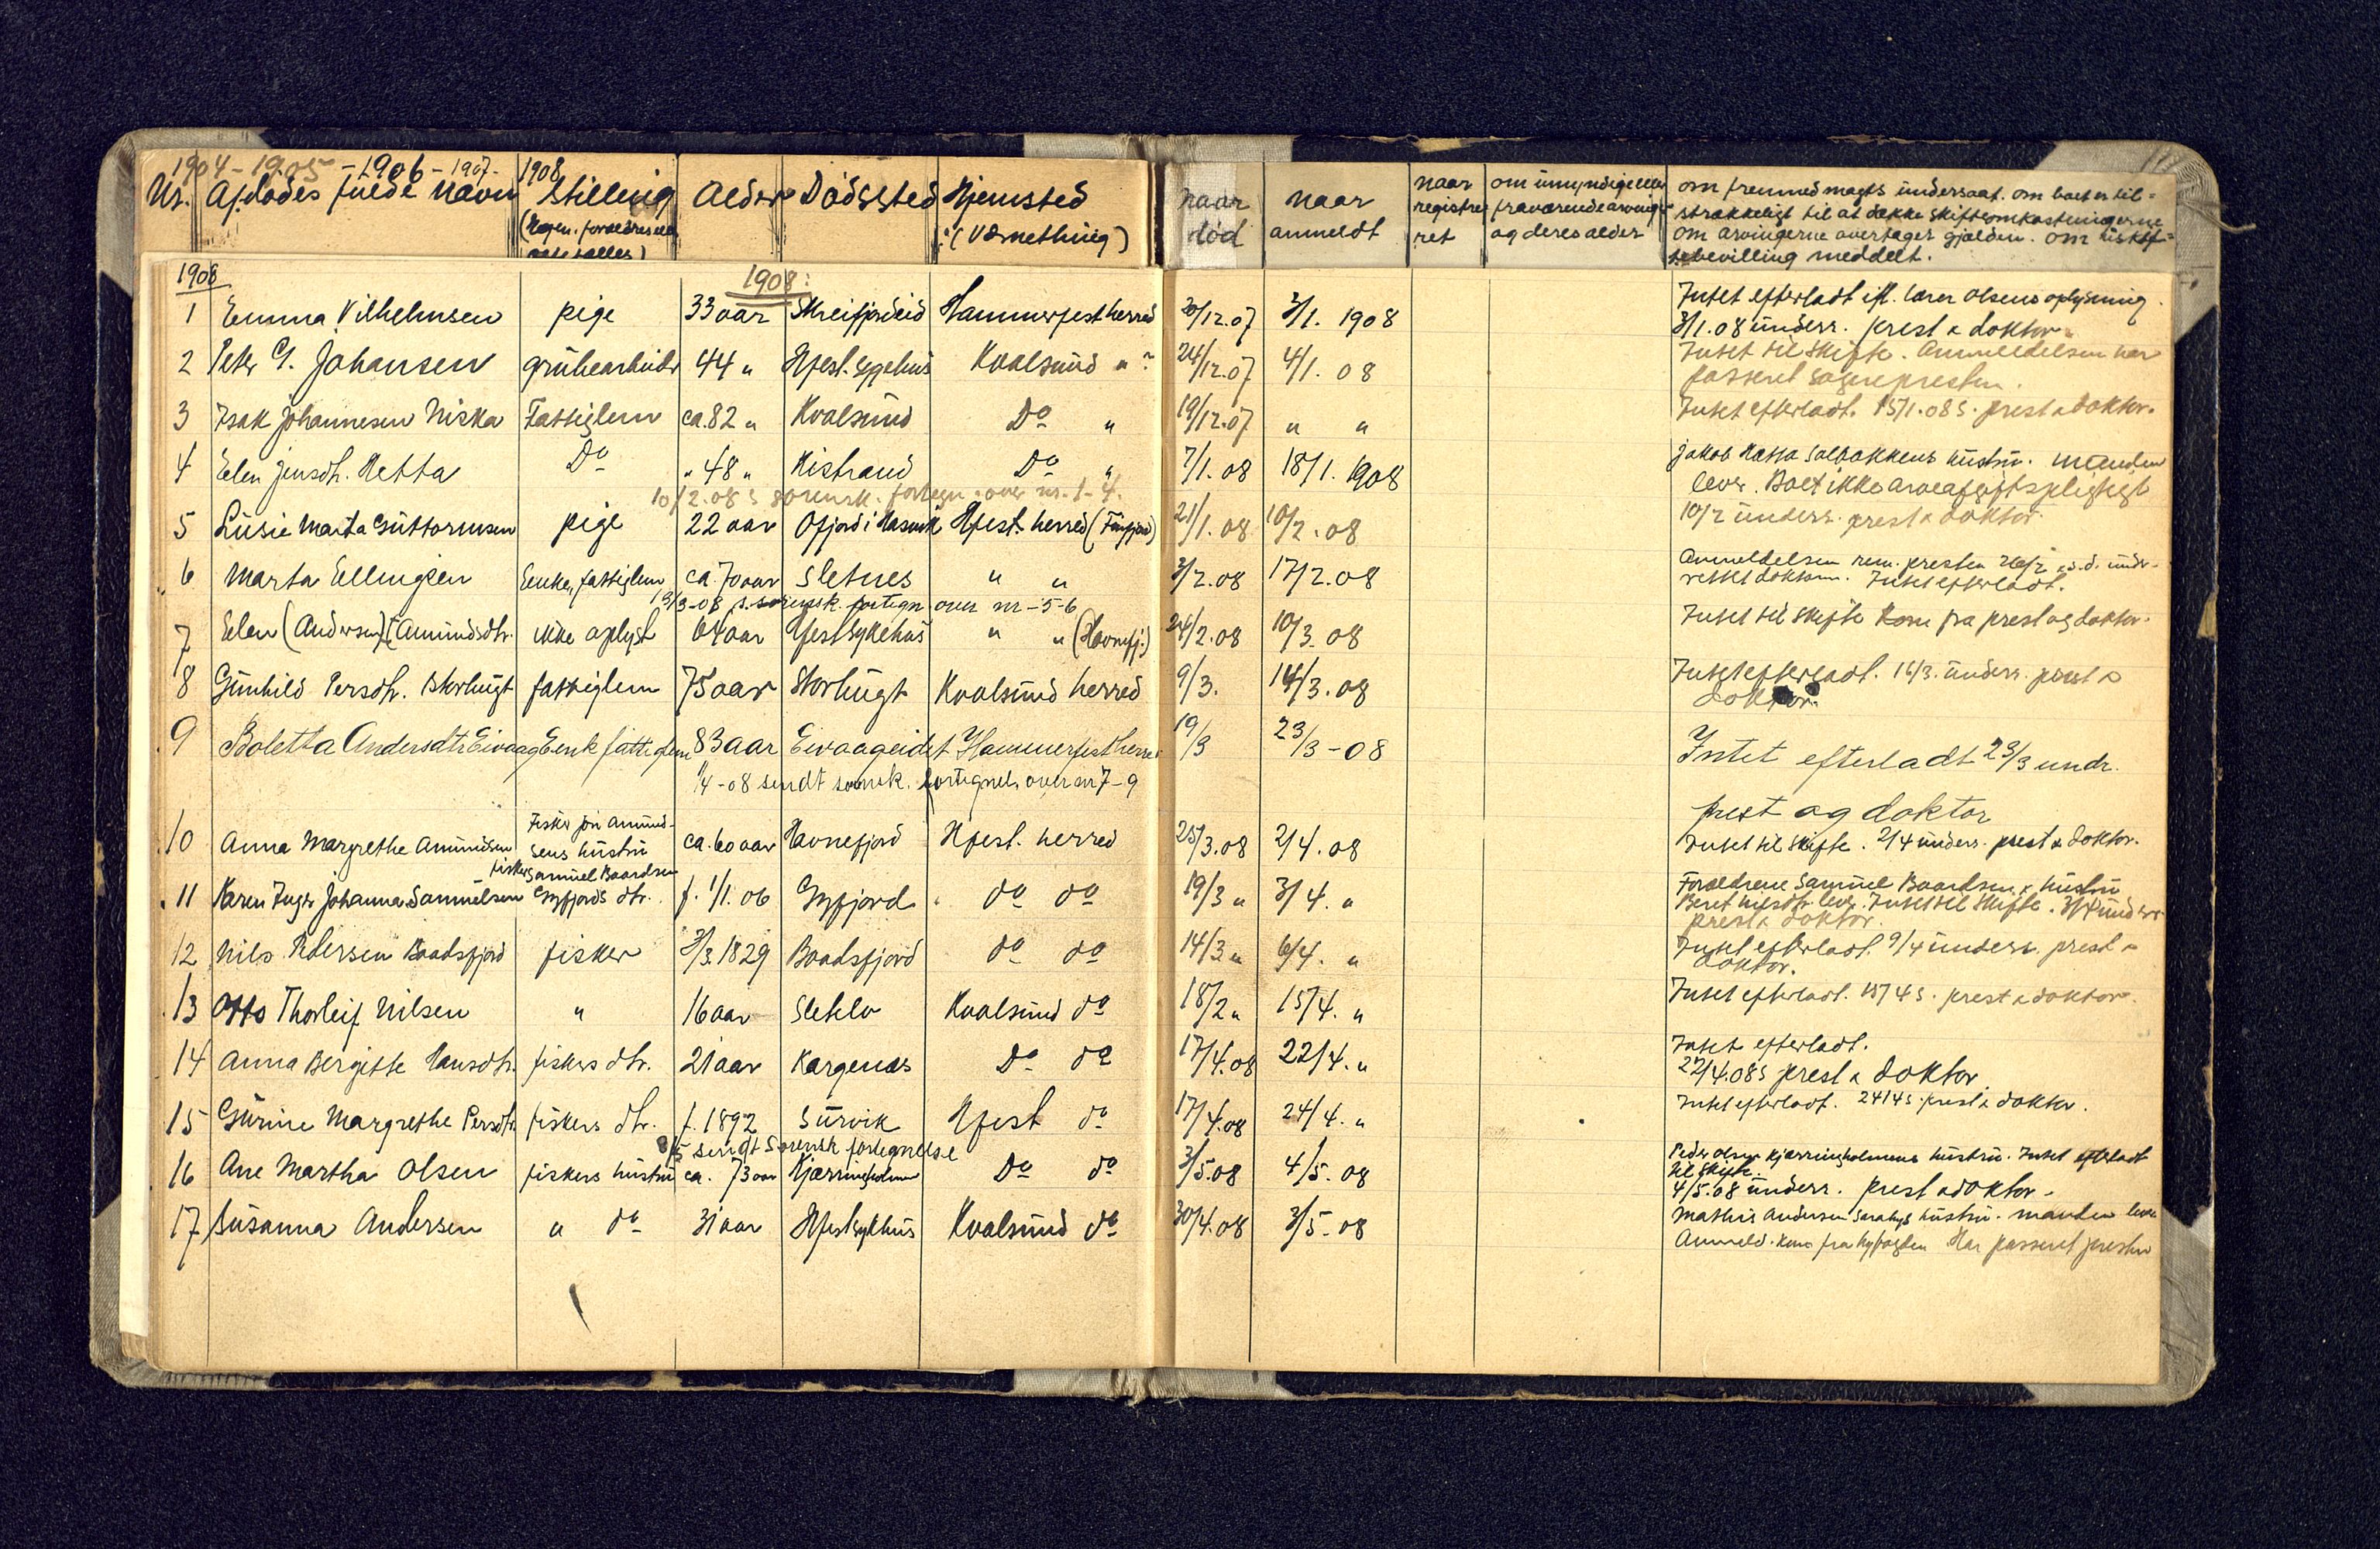 1904-1905-1906-1907- 1908
Nr. Afdødes fulde navn Stilling Alder Dødssted Hjemsted naar død naar anmeldt naar registreret om umyndige eller fraværende arvinger og deres alder
(Værnething)
om fremmed magts undersaat. om boet er til=
strækkeligt til at dække skifteomkostningerne
om arvingerne overtager gjælden. om uskif=
tebevilling meddelt.
1908 1908:
1 Emma Vilhelmsen pige 33 aar Skreifjordeid Hammerfest herred 30/12.07 3/1. 1908 Intet efterladt ifl. lærer Olsens oplysning.
3/1.08 underr. prest & doktor.
2 Peter G. Johansen grubearbeider 44 " Hfest. sygehus Kvalsund " ? 24/12.07 4/1. 08 Intet til skifte. Anmeldelsen har
passeret sognepresten.
3 Isak Johannesen Niska Fattiglem ca. 82 " Kvalsund Do " 19/12.07 " " Intet efterladt. 15/1.08 s. prest & doktor.
4 Elen Jensdtr. Hætta Do " 48 " Kistrand Do " 7/1.08 18/1.1908 Jakob Hætta Solbakkens hustru. Manden
lever. Boet ikke arveafgiftspligtigt
10/2.08 s sorensk. fortegn. over nr. 1-4.
5 Lusie Marta Guttormsen pige 22 aar Ofjord i Hasvik Hfest. herred (Finfjord) 21/1.08 10/2.08 10/2 underr. prest & doktor.
6 Marta Ellingsen Enke, fattiglem ca. 70 aar Sletnes " " 3/2.08 17/2.08 Anmeldelsen rem. presten s.d. under-
rettet doktoren. Intet efterladt.
13/3-08 s. sorensk. fortegn. over nr - 5-6
7 Elen (Andersen) (Amundsdtr. ikke oplyst 64 aar Hfest sykehus " " (Havnefj.) 24/2.08 10/3.08 Intet til skifte Kom fra prest og doktor.
8 Gunhild Persdtr. Storbugt fattiglem 75 aar Storbugt Kvalsund herred 9/3. 14/3.08 Intet efterladt. 16/3. underr. prest &
doktor.
9 Boletta Andersdtr Eivaag Enk fattiglem 83 aar Eivaageidet Hammerfest herred 19/3 23/3-08 Intet efterladt 23/3 undr.
prest og doktor
1/4-08 sendt sorensk. fortegnel. over nr 7-9
10 Anna Margrethe Amundsen Fisker Jon Amund-
sens hustru ca. 60 aar Havnefjord Hfest. herred 25/3.08 2/4.08 Intet til skifte. 2/4 underr. prest & doktor.
11 Karen Inger Johanna Samuelsen fisker Samuel Baardsen
Gryfjords dtr. f. 1/1.06 Gryfjord do do 19/3 " 3/4. " Forældrene Samuel Baardsen & hustru
Beret Nilsdtr. lever. Intet til skifte. 3/4 underr.
prest & doktor.
12 Nils Pedersen Baadsfjord fisker 3/3.1829 Baadsfjord do do 14/3. " 6/4. " Intet efterladt. 9/4 underr. prest &
doktor.
13 Otto Thorleif Nilsen " 16 aar Kvalsund do 18/2 " 15/4. " Intet efterladt. 15/4 s. prest & doktor.
14 Anna Bergitte Hansdtr. fiskers dtr. 21 aar Kargenæs Do do 17/4.08 22/4. " Intet efterladt.
22/4.08 s prest & doktor.
15 Gurine Margrethe Persdtr. fiskers dtr. f. 1892 Survik Hfest do 17/4.08 24/4. " Intet efterladt. 24/4 s. prest & doktor.
8/5 sendt Sorensk fortegnelse
16 Ane Martha Olsen fiskers hustru ca. 73 aar Kjærringholmen Do do 3/5.08 4/5.08 Peder Olsen Kjærringholmens hustru. Intet efterladt
til skifte.
4/5.08 underr. prest & doktor.
17 Susanna Andersen " do 31 aar Hfest sykhus Kvalsund do 30/4.08 3/5-08 Mathis Andersen hustru. manden lever
Anmeld. kom fra byfogden Har passeret presten